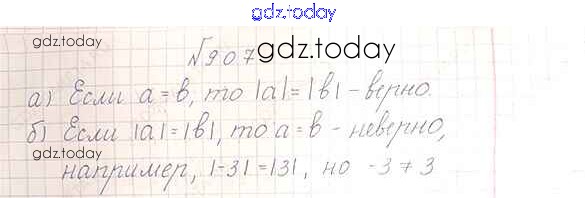 gdz.today
gdz.today
№907 gdz.today
а) Если a = b, то |a| = |b| – верно.
б) Если |a| = |b|, то a = b – неверно,
gdz.today
например, |-3| = |3|, но -3 ≠ 3